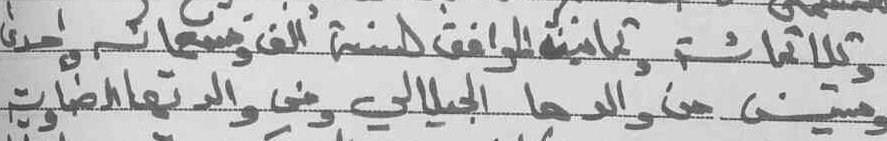 وثلاثمائة وثمانية الموافق لسنة الف وتسعمائة واحدى
وستين من والدها الجيلالي ومن والدتها الضاوية